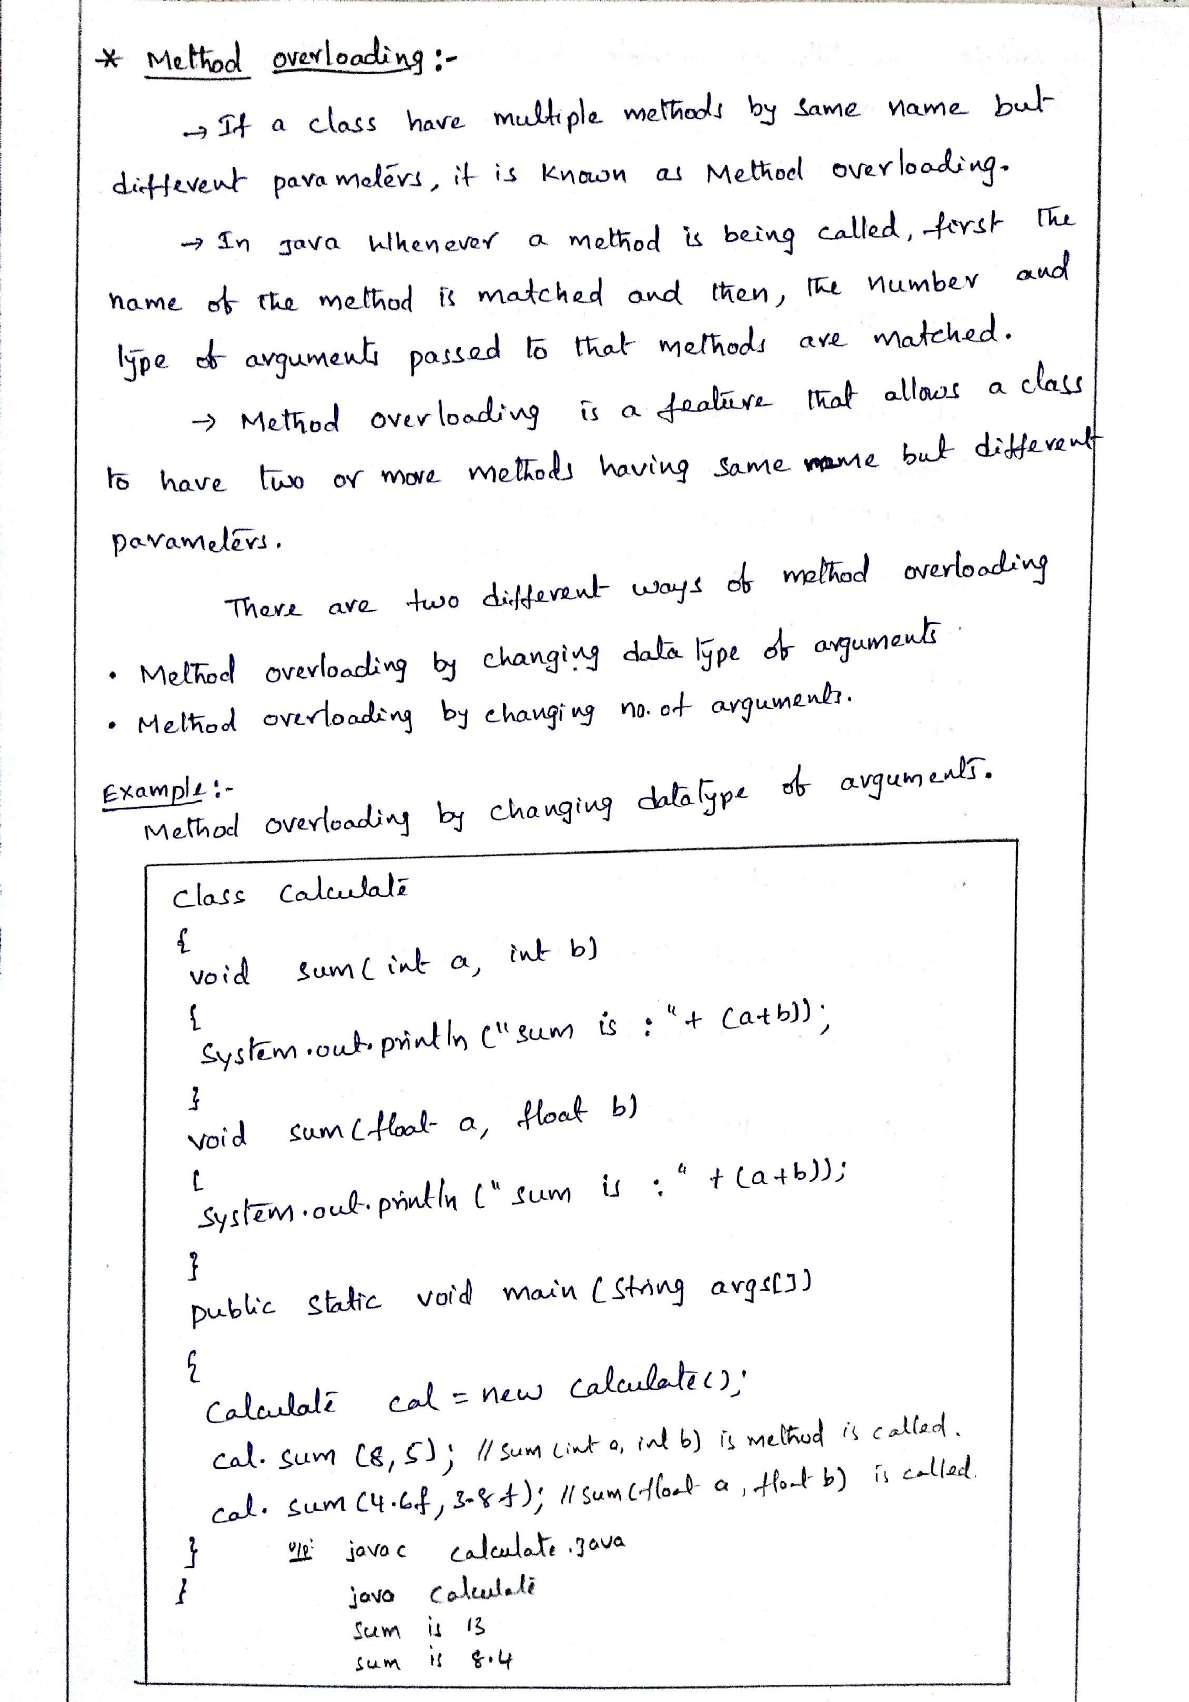 * Method overloading :-
→ If a class have multiple methods by same name but
different parameters, it is known as Method overloading.
→ In java whenever a method is being called, first the
name of the method is matched and then, the number and
type of arguments passed to that methods are matched.
→ Method overloading is a feature that allows a class
to have two or more methods having same name but different
parameters.
There are two different ways of method overloading
• Method overloading by changing data type of arguments
• Method overloading by changing no. of arguments.
Example :-
Method overloading by changing datatype of arguments.
class calculate
{
void sum( int a, int b)
{
System.out.println ("sum is : "+ (a+b));
}
void sum (float a, float b)
{
System.out.println (" sum is : " + (a+b));
}
public static void main (String args[])
{
Calculate cal = new calculate();
cal. sum (8,5); // sum (int a, int b) is method is called.
cal. sum (4.6f, 3.8f); // sum (float a, float b) is called.
} o/p: javac calculate.java
} java calculate
sum is 13
sum is 8.4